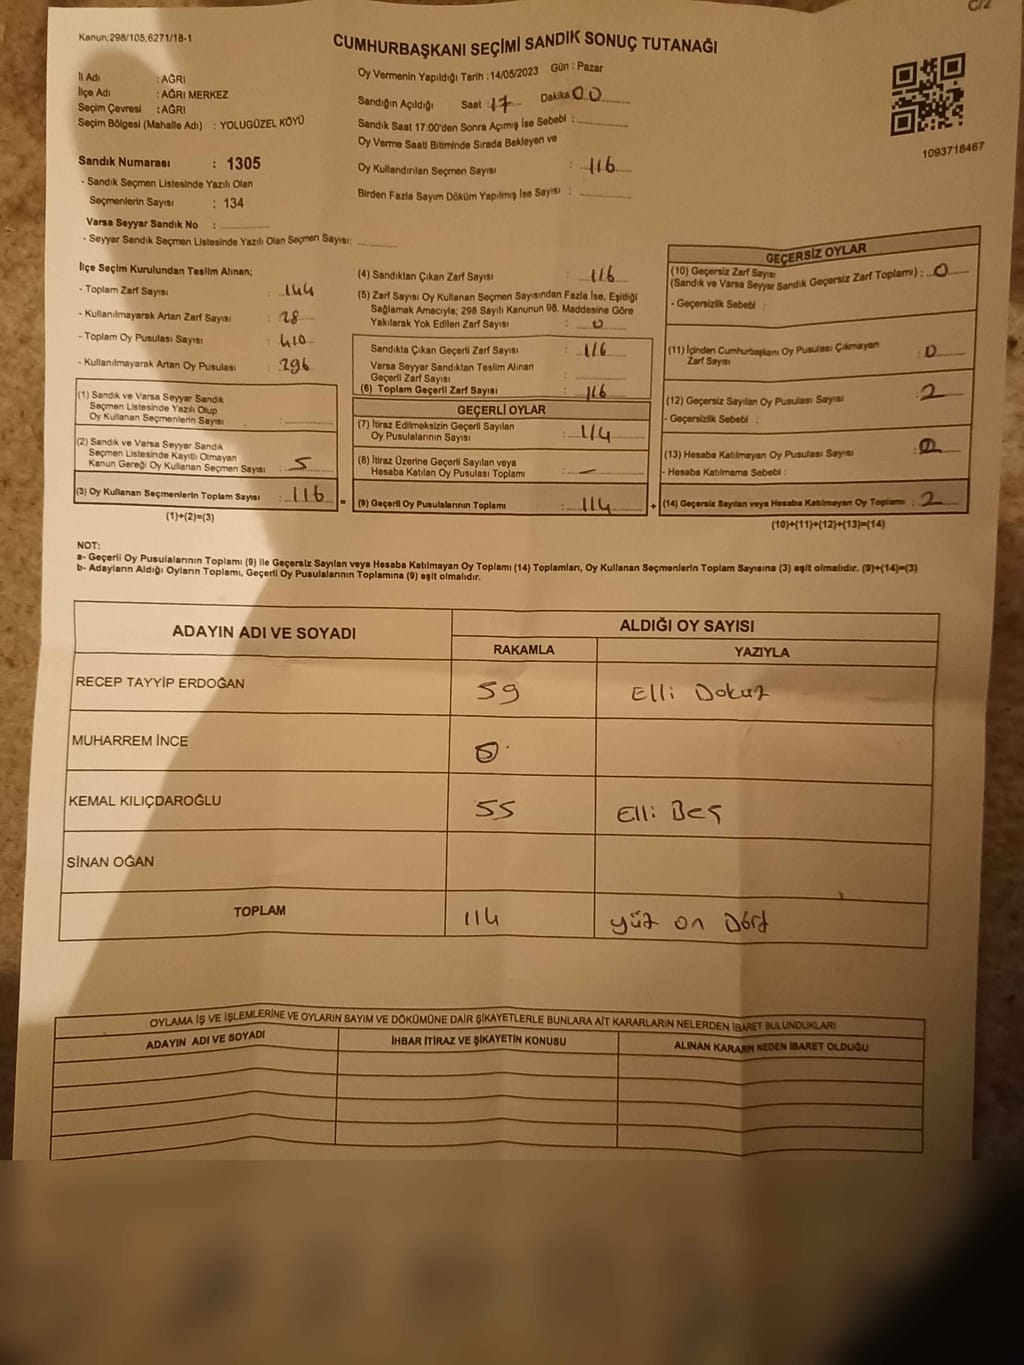 C/2
Kanun;298/105,6271/18-1
CUMHURBAŞKANI SEÇİMİ SANDIK SONUÇ TUTANAĞI
İl Adı : AĞRI
İlçe Adı : AĞRI MERKEZ
Seçim Çevresi : AĞRI
Seçim Bölgesi (Mahalle Adı) : YOLUGÜZEL KÖYÜ
Oy Vermenin Yapıldığı Tarih : 14/05/2023 Gün : Pazar
Sandığın Açıldığı Saat : 17 Dakika 00
Sandık Saat 17:00'den Sonra Açımış İse Sebebi :
Oy Verme Saati Bitiminde Sırada Bekleyen ve
Oy Kullandırılan Seçmen Sayısı : 116
Birden Fazla Sayım Döküm Yapılmış İse Sayısı :
1093718467
Sandık Numarası : 1305
- Sandık Seçmen Listesinde Yazılı Olan
Seçmenlerin Sayısı : 134
Varsa Seyyar Sandık No :
- Seyyar Sandık Seçmen Listesinde Yazılı Olan Seçmen Sayısı:
İlçe Seçim Kurulundan Teslim Alınan;
- Toplam Zarf Sayısı : 144
- Kullanılmayarak Artan Zarf Sayısı : 28
- Toplom Oy Pusulası Sayısı : 410
- Kullanılmayarak Artan Oy Pusulası : 296
(1) Sandık ve Varsa Seyyar Sandık
Seçmen Listesinde Yazılı Olup
Oy Kullanan Seçmenlerin Sayısı :
(2) Sandık ve Varsa Seyyar Sandık
Seçmen Listesinde Kayıtlı Olmayan
Kanun Gereği Oy Kullanan Seçmen Sayısı : 5
(3) Oy Kullanan Seçmenlerin Toplam Sayısı : 116
(1)+(2)=(3)
(4) Sandıktan Çıkan Zarf Sayısı : 116
(5) Zarf Sayısı Oy Kullanan Seçmen Sayısından Fazla İse, Eşitliği
Sağlamak Amacıyla; 298 Sayılı Kanunun 98. Maddesine Göre
Yakılarak Yok Edilen Zarf Sayısı : 0
Sandıkta Çıkan Geçerli Zarf Sayısı : 116
Varsa Seyyar Sandıktan Teslim Alınan
Geçerli Zarf Sayısı :
(6) Toplam Geçerli Zarf Sayısı : 116
GEÇERLİ OYLAR
(7) İtiraz Edilmeksizin Geçerli Sayılan
Oy Pusulalarının Sayısı : 114
(8) İtiraz Üzerine Geçerli Sayılan veya
Hesaba Katılan Oy Pusulası Toplamı : —
= (9) Geçerli Oy Pusulalarının Toplamı : 114
GEÇERSİZ OYLAR
(10) Geçersiz Zarf Sayısı
(Sandık ve Varsa Seyyar Sandık Geçersiz Zarf Toplamı) : 0
- Geçersizlik Sebebi :
(11) İçinden Cumhurbaşkanı Oy Pusulası Çıkmayan
Zarf Sayısı : 0
(12) Geçersiz Sayılan Oy Pusulası Sayısı : 2
- Geçersizlik Sebebi :
(13) Hesaba Katılmayan Oy Pusulası Sayısı :
- Hesaba Katılmama Sebebi :
+ (14) Geçersiz Sayılan veya Hesaba Katılmayan Oy Toplamı : 2
(10)+(11)+(12)+(13)=(14)
NOT:
a- Geçerli Oy Pusulalarının Toplamı (9) ile Geçersiz Sayılan veya Hesaba Katılmayan Oy Toplamı (14) Toplamları, Oy Kullanan Seçmenlerin Toplam Sayısına (3) eşit olmalıdır. (9)+(14)=(3)
b- Adayların Aldığı Oyların Toplamı, Geçerli Oy Pusulalarının Toplamına (9) eşit olmalıdır.
ADAYIN ADI VE SOYADI ALDIĞI OY SAYISI
RAKAMLA YAZIYLA
RECEP TAYYİP ERDOĞAN 59 Elli Dokuz
MUHARREM İNCE
KEMAL KILIÇDAROĞLU 55 Elli Beş
SİNAN OĞAN
TOPLAM 114 yüz on Dört
OYLAMA İŞ VE İŞLEMLERİNE VE OYLARIN SAYIM VE DÖKÜMÜNE DAİR ŞİKAYETLERLE BUNLARA AİT KARARLARIN NELERDEN İBARET BULUNDUKLARI
ADAYIN ADI VE SOYADI İHBAR İTİRAZ VE ŞİKAYETİN KONUSU ALINAN KARARIN NEDEN İBARET OLDUĞU